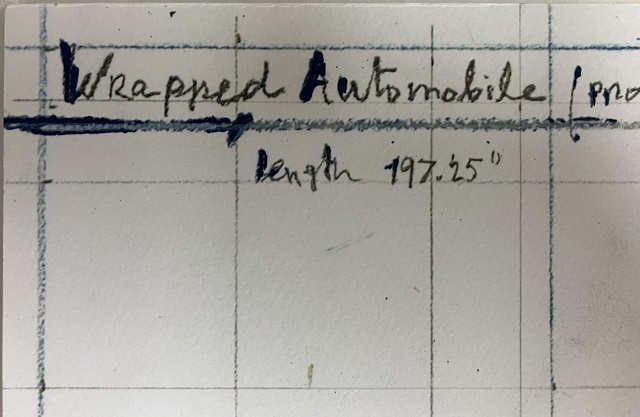 Wrapped Automobile (pro
length 197.25"